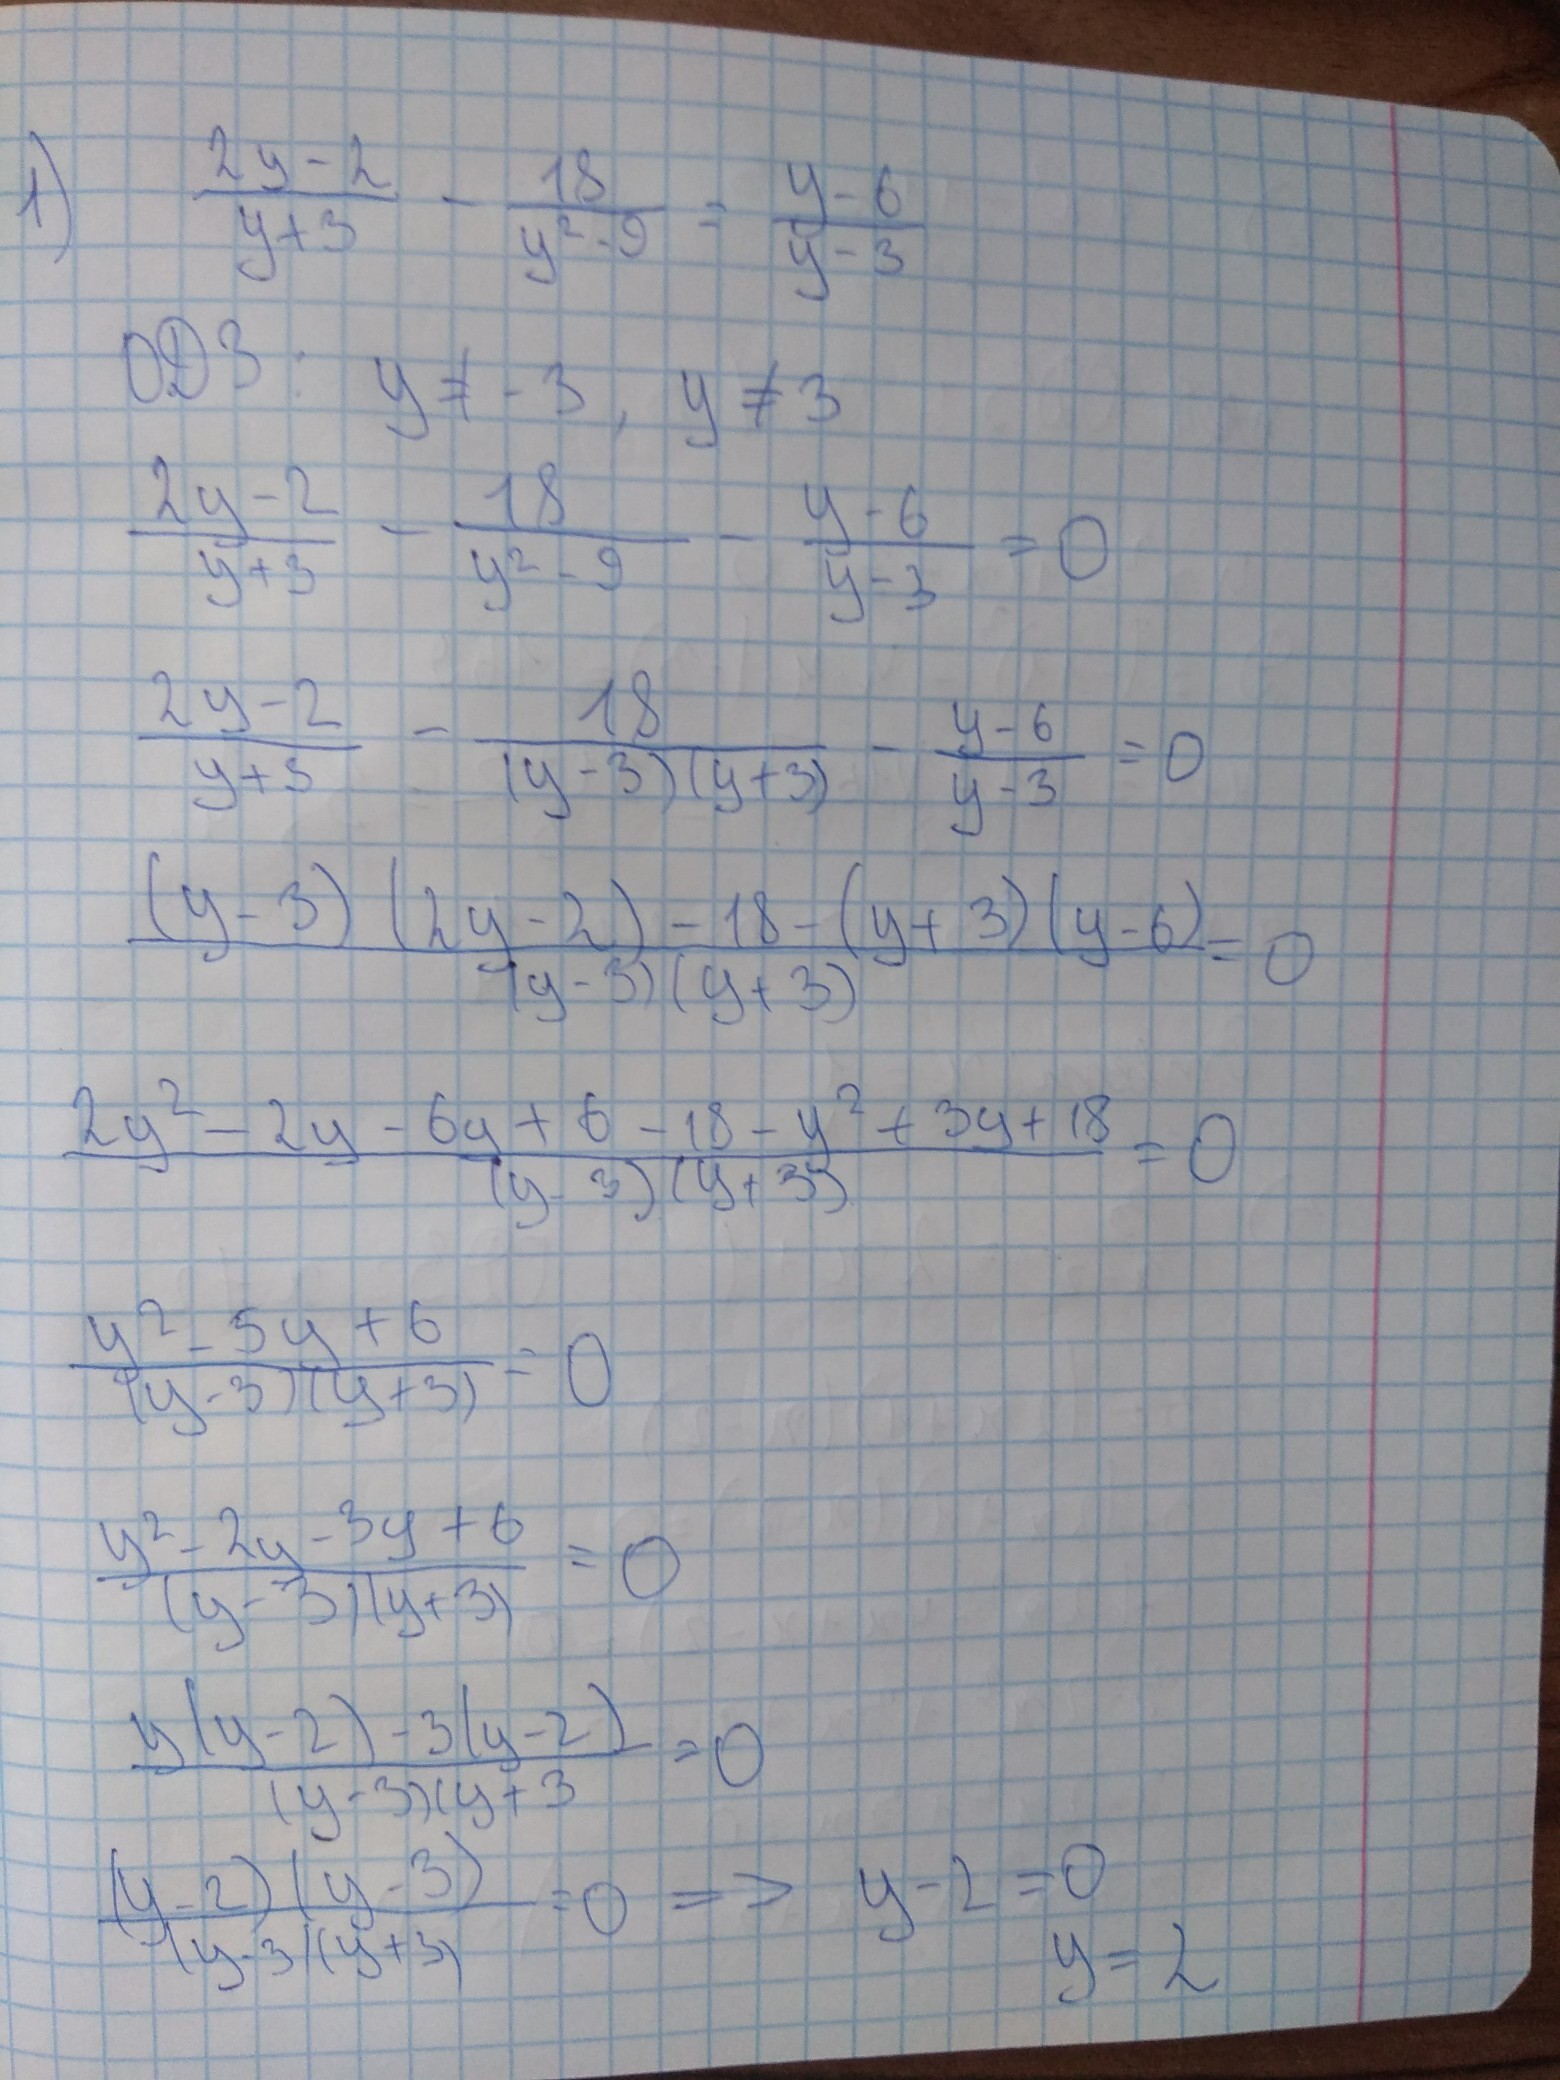 1) (2y-2)/(y+3) - 18/(y²-9) = (y-6)/(y-3)
ОДЗ: y ≠ -3, y ≠ 3
(2y-2)/(y+3) - 18/(y²-9) - (y-6)/(y-3) = 0
(2y-2)/(y+3) - 18/((y-3)(y+3)) - (y-6)/(y-3) = 0
((y-3)(2y-2)-18-(y+3)(y-6))/((y-3)(y+3)) = 0
(2y²-2y-6y+6-18-y²+3y+18)/((y-3)(y+3)) = 0
(y²-5y+6)/((y-3)(y+3)) = 0
(y²-2y-3y+6)/((y-3)(y+3)) = 0
(y(y-2)-3(y-2))/((y-3)(y+3) = 0
((y-2)(y-3))/((y-3)(y+3)) = 0 => y-2=0
y=2